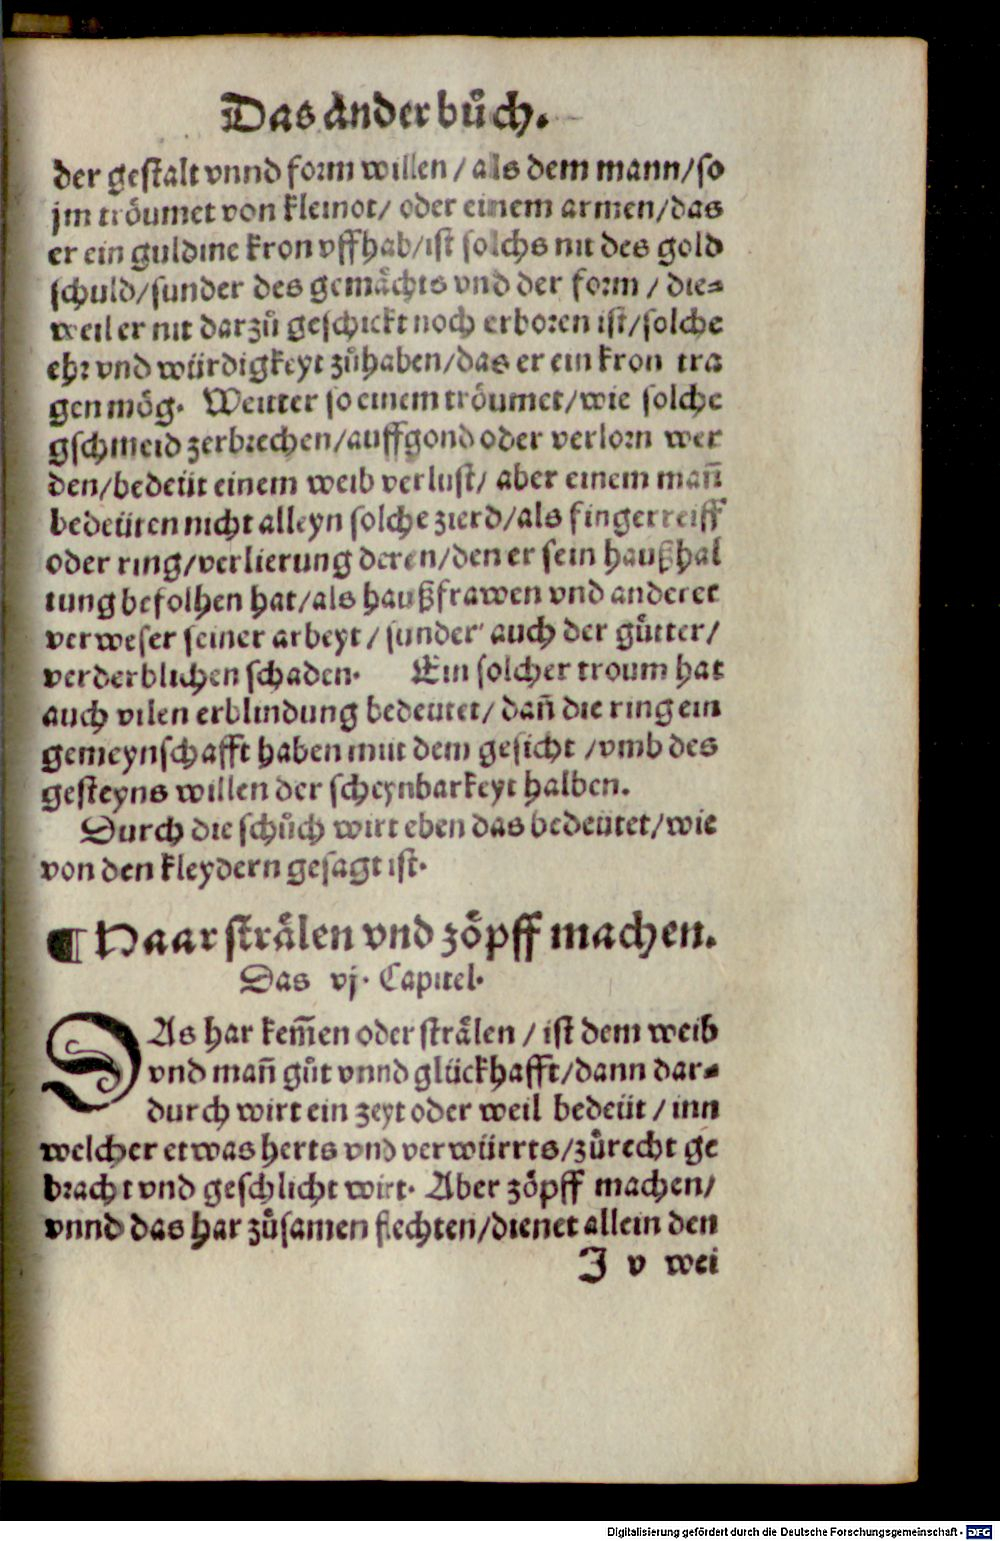 Das ander bůch.
der gestalt vnnd form willen / als dem mann/so
jm trôumet von kleinot/ oder einem armen/das
er ein guldine kron vffhab/ist solchs nit des gold
schuld/sunder des gemâchts vnd der form / die-
weil er nit darzů geschickt noch erboren ist/solche
ehr vnd würdigkeyt zůhaben/das er ein kron tra
gen môg. Weitter so einem trôumet/wie solche
gschmeid zerbrechen/auffgond oder verlorn wer
den/bedeüt einem weib verlust/ aber einem mañ
bedeüten nicht alleyn solche zierd/als fingerreiff
oder ring/verlierung deren/den er sein haußhal
tung befolhen hat/als haußfrawen vnd anderer
verweser seiner arbeyt / sunder auch der gûtter/
verderblichen schaden. Ein solcher troum hat
auch vilen erblindung bedeutet/ dañ die ring ein
gemeynschafft haben mit dem gesicht /vmb des
gesteyns willen der scheynbarkeyt halben.
Durch die schůch wirt eben das bedeütet/wie
von den kleydern gesagt ist.
¶ Haar strâlen vnd zôpff machen.
Das vj. Capitel.
DAs har kem̃en oder strâlen / ist dem weib
vnd mañ gůt vnnd glückhafft/dann dar-
durch wirt ein zeyt oder weil bedeüt / inn
welcher etwas herts vnd verwürrts/zůrecht ge
bracht vnd geschlicht wirt. Aber zôpff machen/
vnnd das har zůsamen flechten/dienet allein den
J v wei
Digitalisierung gefördert durch die Deutsche Forschungsgemeinschaft - DFG